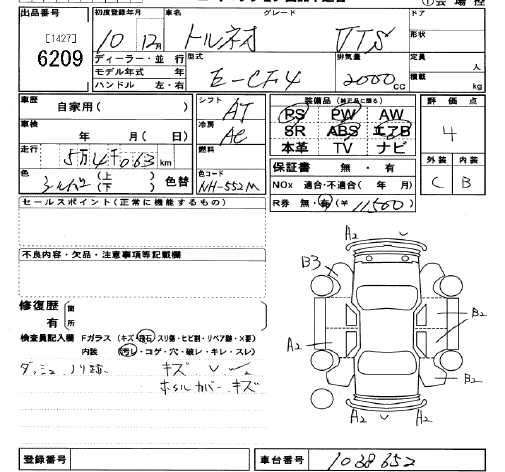 出品番号
[1427]
6209
初度登録年月 車名 グレード ドア
10 12月 トルネオ VTS 形状
ディーラー・並 行 型式 排気量 定員 人
モデル年式 年 E-CF4 2000cc 積載
ハンドル 左・右 kg
車歴 自家用( ) シフト AT 装備品 (純正品に限る) 評 価 点
PS PW AW 4
車検 年 月( 日) 冷房 AC SR ABS エアB
本革 TV ナビ 外装 内装
走行 5万4千063km 燃料 保証書 無・有 C B
色 シルバー (上 ) (下 ) 色替 色コード NH-552M NOx 適合・不適合( 年 月)
R券 無・有(¥11,500)
セールスポイント(正常に機能するもの)
不良内容・欠品・注意事項等記載欄
修復歴 箇
有 所
検査員記入欄 Fガラス (キズ・飛石・スリ傷・ヒビ割・リペア跡・×要)
内装 (汚レ・コゲ・穴・破レ・キレ・スレ)
ダッシュ ノリ跡 キズ
ホイルカバー キズ
A2
B3
B2
A2
B2
A2 A2
登録番号 車台番号 1038652